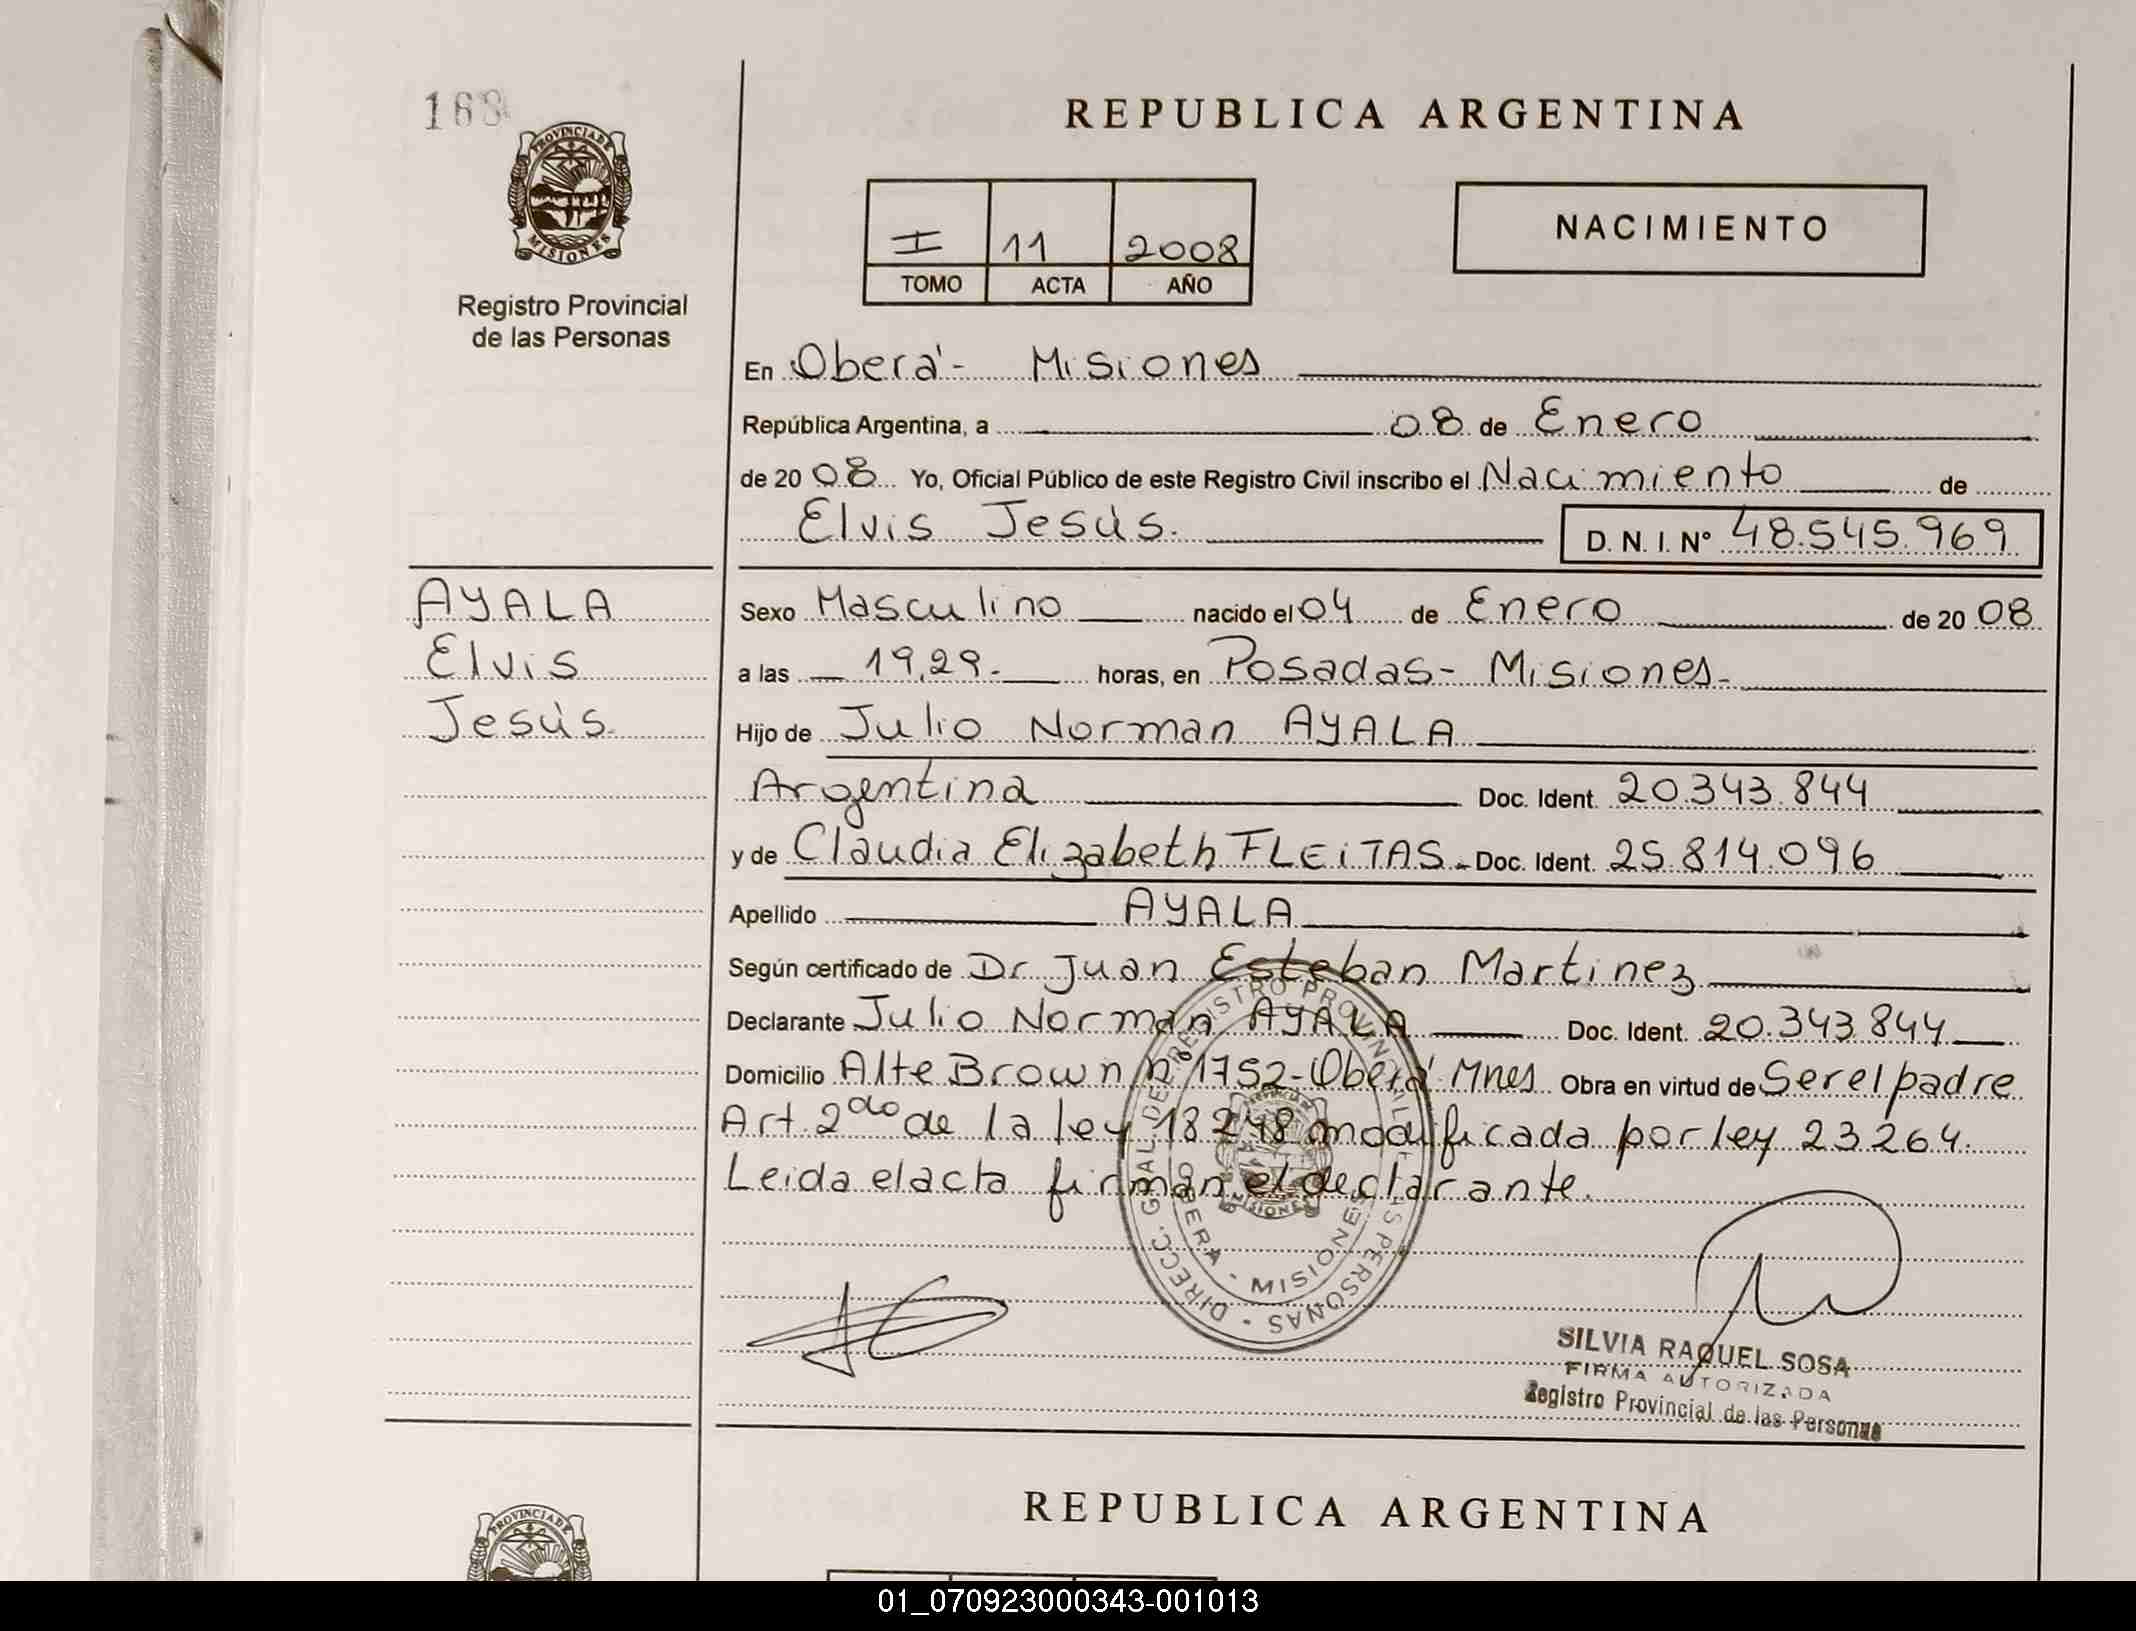 168
PROVINCIA DE
MISIONES
Registro Provincial
de las Personas
REPUBLICA ARGENTINA
I 11 2008
TOMO ACTA AÑO
NACIMIENTO
En Oberá - Misiones
República Argentina, a 08 de Enero
de 20 08 Yo, Oficial Público de este Registro Civil inscribo el Nacimiento de
Elvis Jesús. D. N. I. Nº 48.545.969
AYALA
Elvis
Jesús
Sexo Masculino nacido el 04 de Enero de 20 08
a las 19,29.- horas, en Posadas - Misiones.-
Hijo de Julio Norman AYALA
Argentina Doc. Ident. 20.343.844
y de Claudia Elizabeth FLEiTAS.- Doc. Ident. 25.814.096
Apellido AYALA
Según certificado de Dr Juan Esteban Martinez
Declarante Julio Norman AYALA Doc. Ident. 20.343.844
Domicilio Alte Brown nº 1752 - Oberá Mnes Obra en virtud de Ser el padre
Art. 2do de la ley 18248 modificada por ley 23264.
Leida el acta firman el declarante.
DIRECC. GRAL. DE REGISTRO PROVINCIAL DE LAS PERSONAS
OBERA - MISIONES
SILVIA RAQUEL SOSA
FIRMA AUTORIZADA
Registro Provincial de las Personas
PROVINCIA DE
REPUBLICA ARGENTINA
01_070923000343-001013